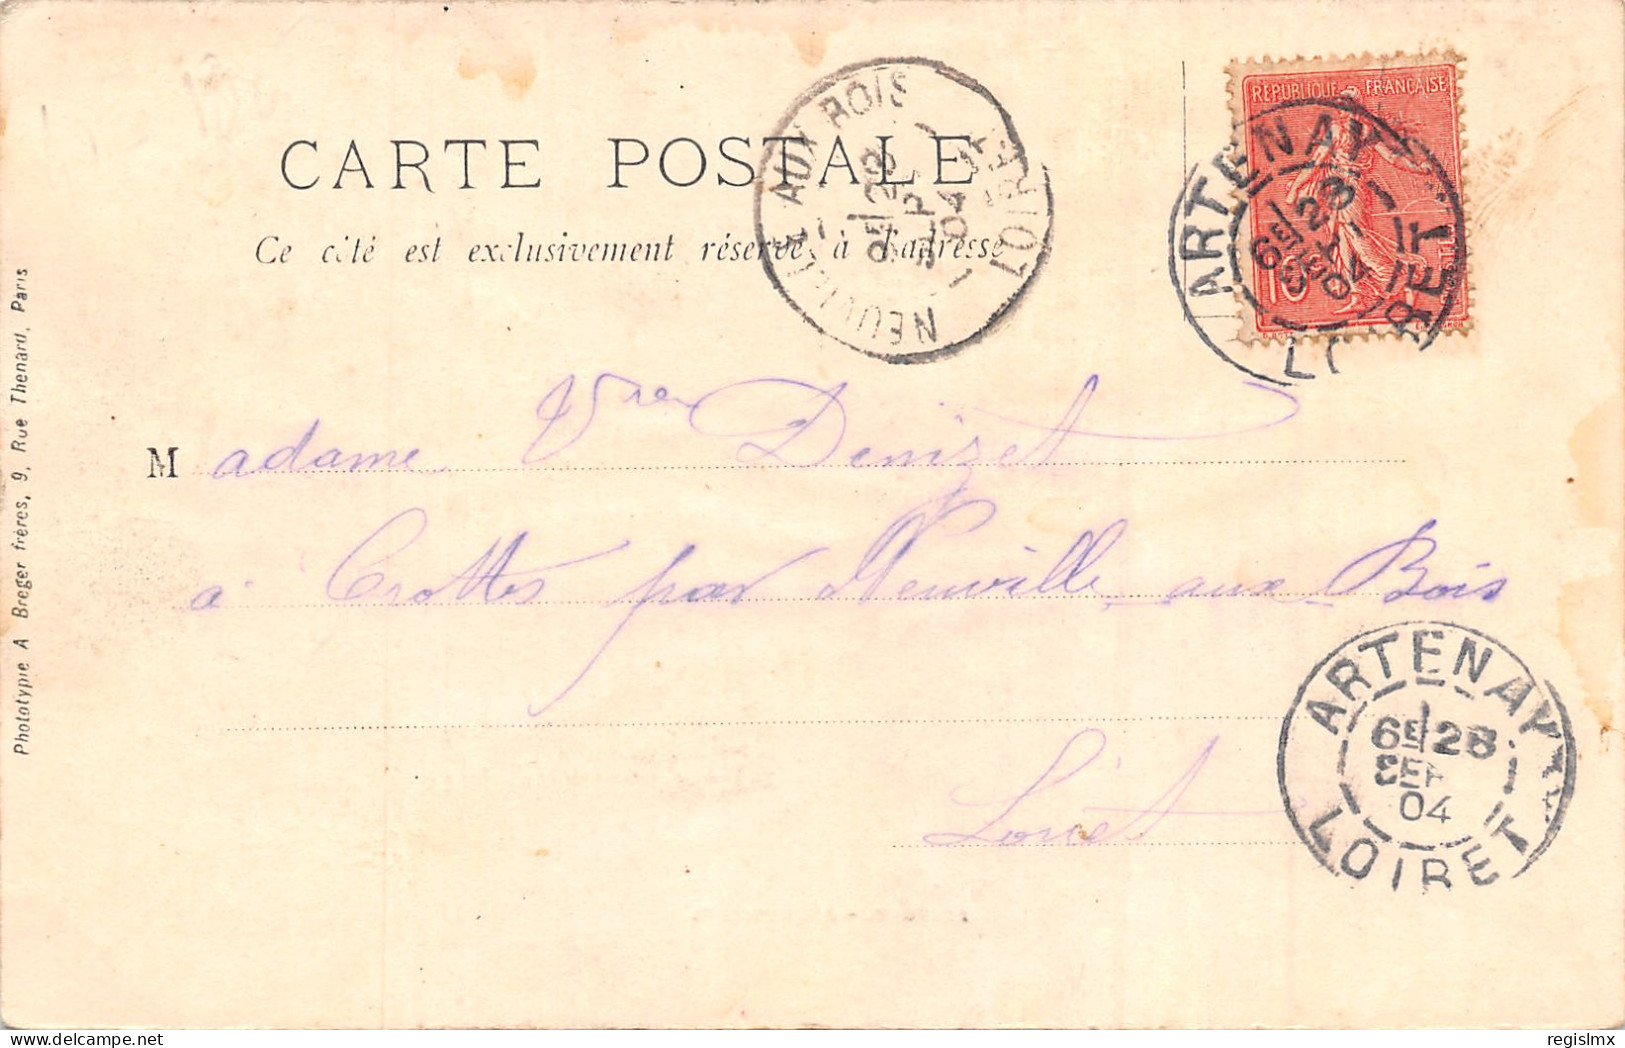 CARTE POSTALE
Ce côté est exclusivement réservé à l'adresse
REPUBLIQUE FRANÇAISE
10
ARTENAY
6E 28
SEPT
04
LOIRET
NEUVILLE AUX BOIS
28
SEPT
04
LOIRET
Madame Vve Denizet
à Crottes par Neuville aux Bois
Loiret
ARTENAY
6E 28
SEPT
04
LOIRET
Phototypie A Breger frères, 9, Rue Thenard, Paris
regislmx